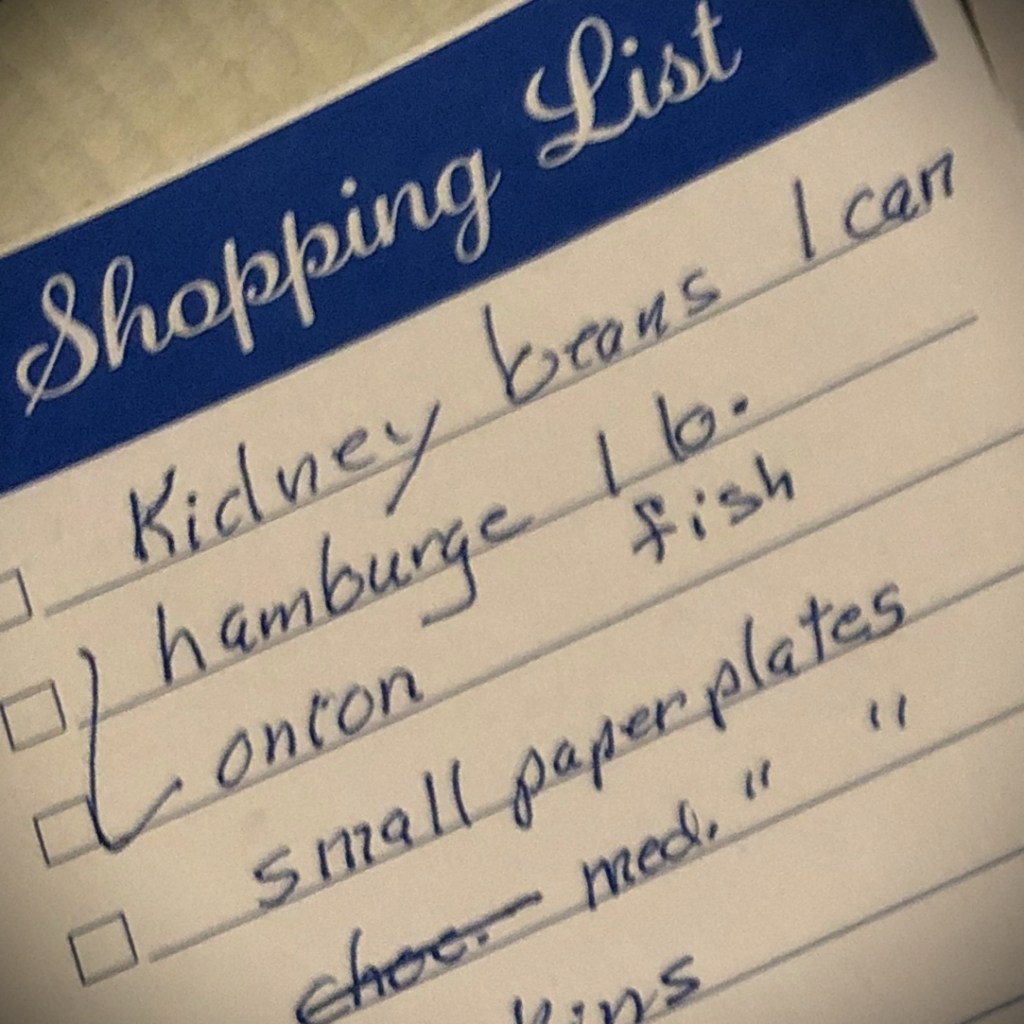 Shopping List
Kidney beans 1 can
hamburge 1 lb.
onion fish
small paper plates
choc. med. " "
kins